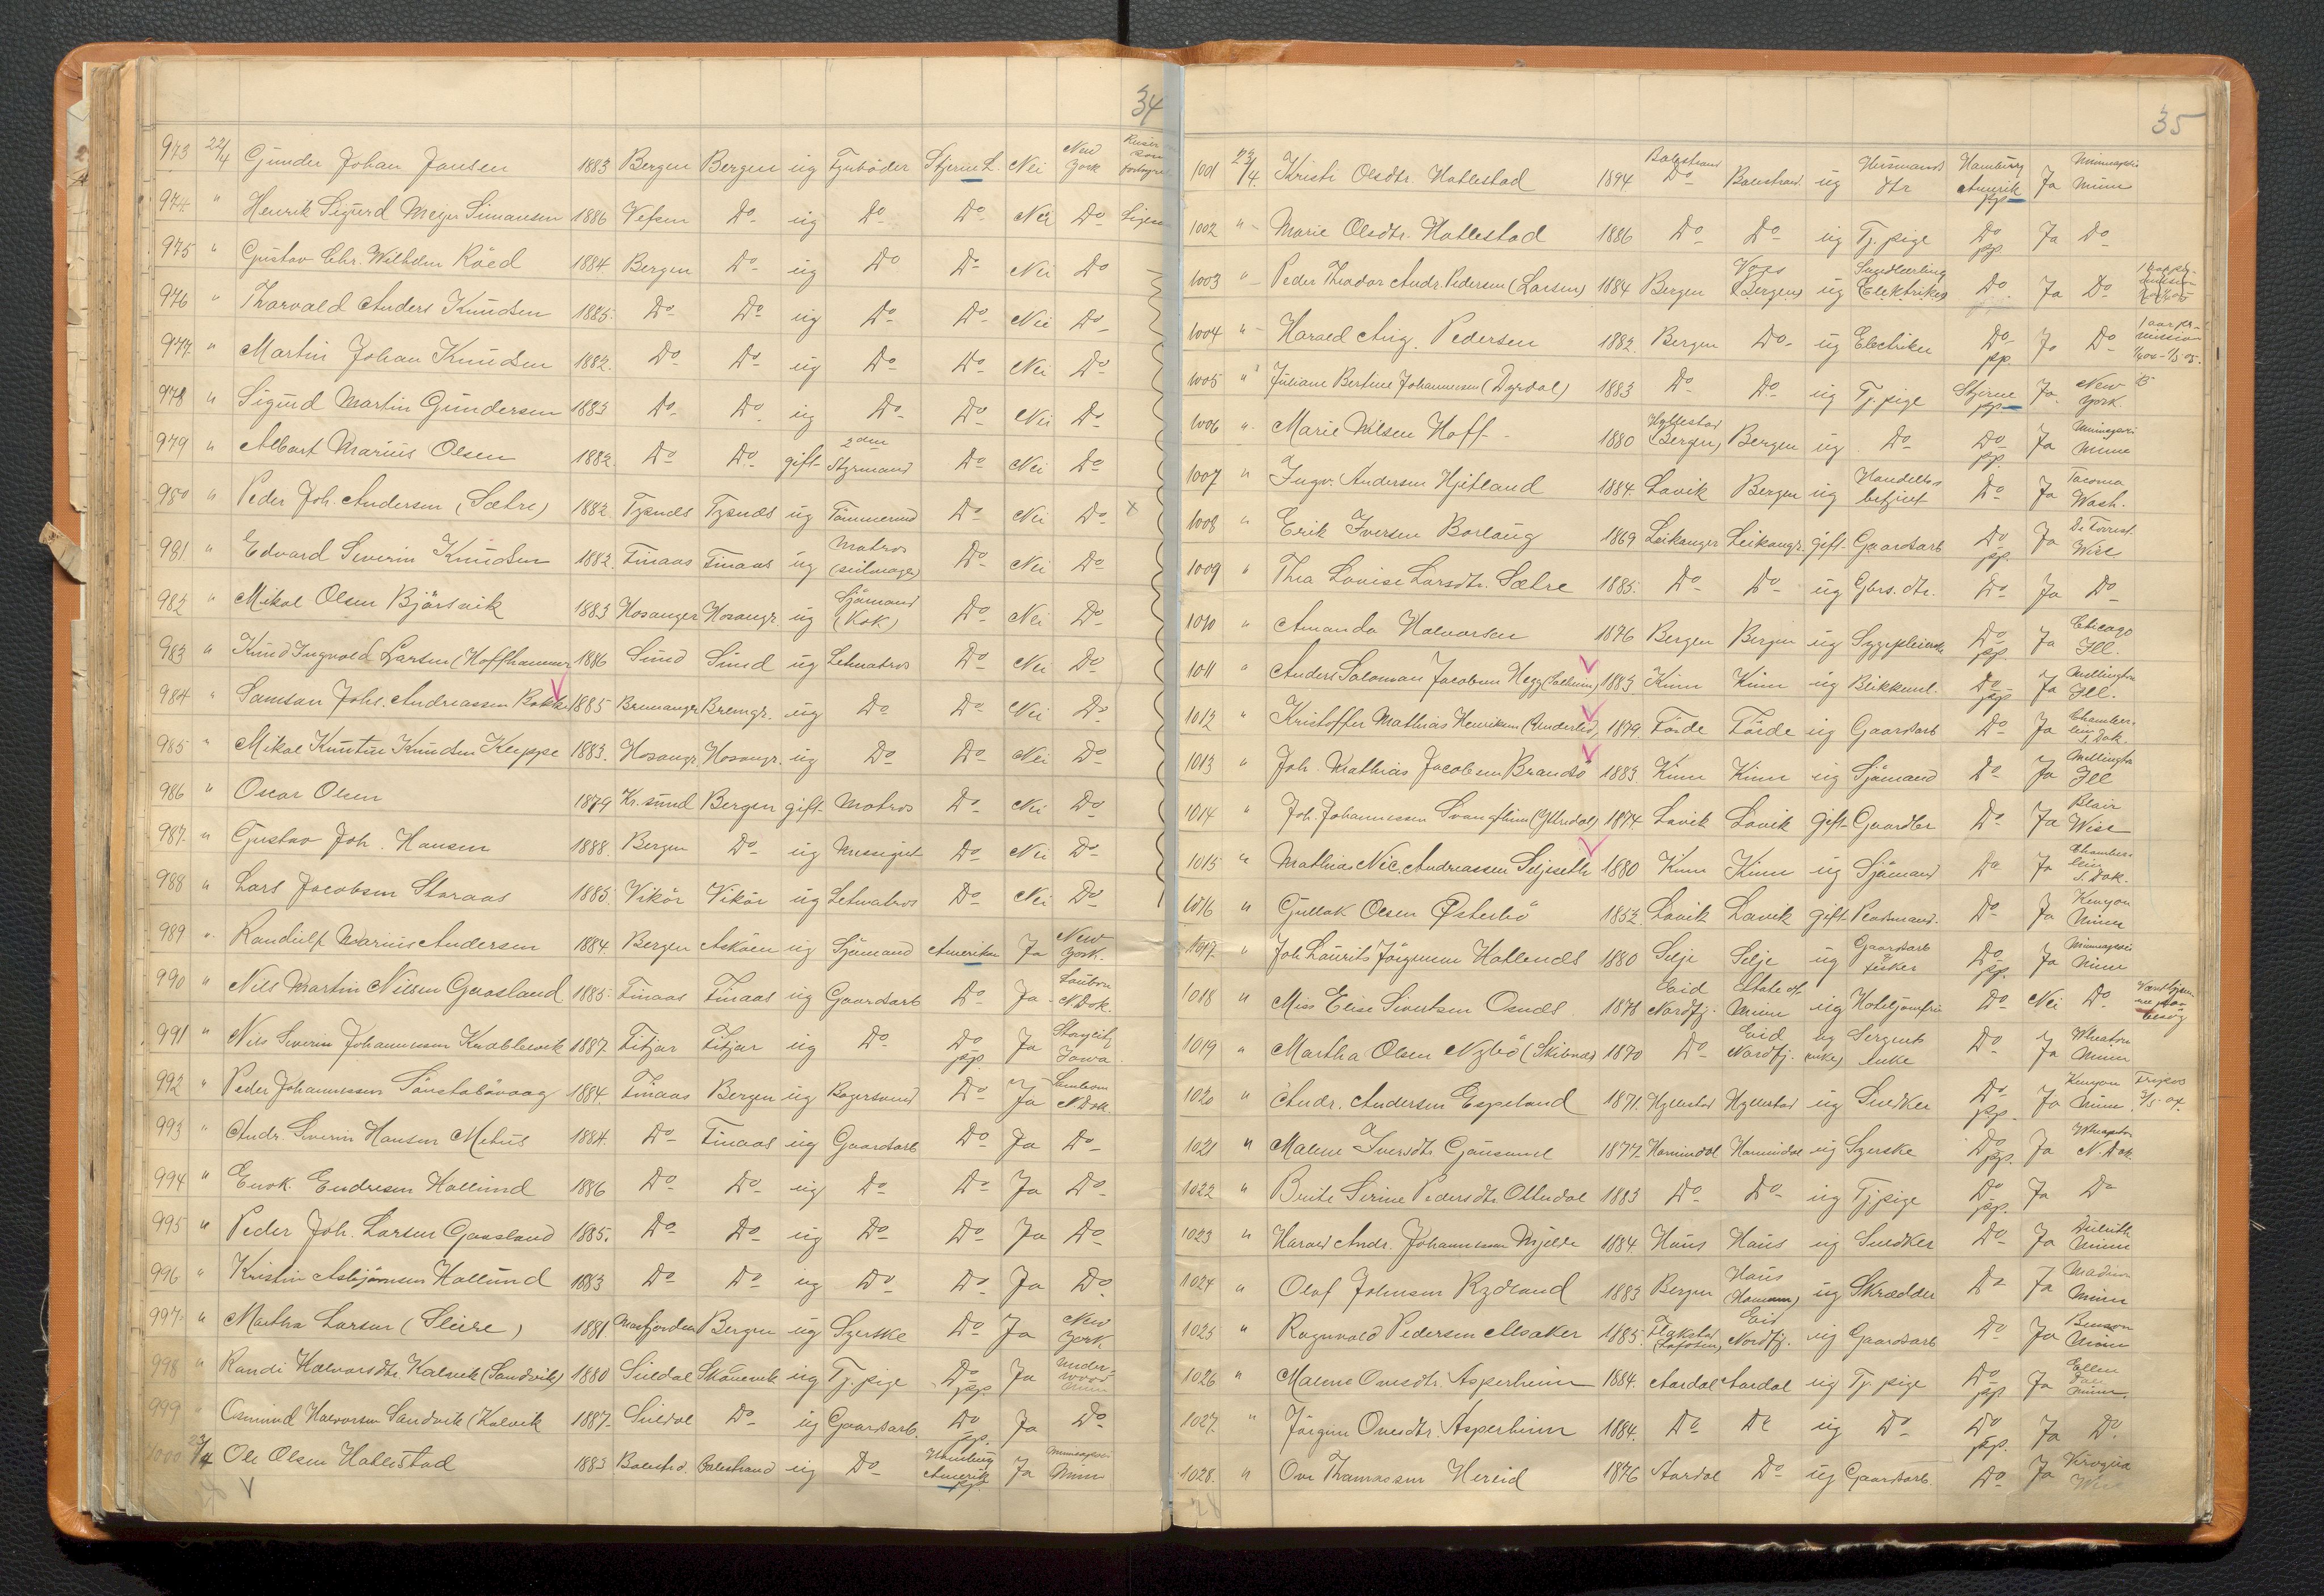 34
973 22/4 Gunder Johan Jansen 1883 Bergen Bergen ug Fyrböder Stjerne L. Nei New York
974 " Henrik Sigurd Meyer Simonsen 1886 Vefsen Do ug Do Do Nei Do
975 " Gustav Chr. Wilhelm Röed 1884. Bergen Do ug Do Do Nei Do
976 " Thorvald Anders Knudsen 1885. Do Do ug Do Do Nei Do
977. " Martin Johan Knudsen 1882. Do Do ug Do Do Nei Do
978 " Sigurd Martin Gundersen 1883 Do Do ug Do Do Nei Do
979 " Albert Marius Olsen 1882. Do Do gift 2den Styrmand Do Nei Do
980 " Peder Joh. Andersen (Sætre) 1882 Tysnes Tysnes ug Tömmermd Do Nei Do x
981 " Edvard Severin Knudsen 1882. Finaas Finaas ug Matros (seilmager) Do Nei Do
982 " Mikal Olsen Bjørsvik 1883 Hosanger Hosangr. ug Sjömand (Kok) Do Nei Do
983 " Knud Ingvald Larsen (Hoffhammer 1886 Sund Sund ug Letmatros Do Nei Do
984 " Samson Johs. Andreassen 1885 Bremanger Bremgr. ug Do Do Nei Do
985 " Mikal Knutsen Knudsen Kleppe 1883. Hosangr. Hosangr. ug Do Do Nei Do
986 " Oscar Olsen 1879 Kr.sund Bergen gift Matros Do Nei Do
987. " Gustav Joh. Hansen 1888. Bergen Do ug Messegut Do Nei Do
988 " Lars Jacobsen Storaas 1885. Vikör Vikör ug Letmatros Do Nei Do
989 " Randulf Marius Andersen 1884. Bergen Asköen ug Sjömand Amerika Ja New York.
990 " Nils Martin Nilsen Gaasland 1885. Finaas Finaas ug Gaardsarb Do Ja N Dak.
991 " Nils Severin Johannessen 1887. Fitjar Fitjar ug Do Do pp. Ja Story City Iowa
992 " Peder Johannessen 1884. Finaas Bergen ug Bagersvend Do Ja N Dak.
993 " Andr. Severin Hansen Mehus 1884. Do Finaas ug Gaardsarb Do Ja Do
994 " Enok. Endresen Hallund 1886 Do Do ug Do Do Ja Do
995 " Peder Joh. Larsen Gaasland 1885. Do Do ug Do Do Ja Do
996 " Kristin Asbjörnsen Hallund 1883 Do Do ug Do Do Ja Do
997. " Martha Larsen (Sleire) 1881. Masfjorden Bergen ug Syerske Do Ja New York.
998 " Randi Halvorsdtr. Kalvik (Sandvik) 1880 Suldal Skånevik ug Tj. pige Do pp. Ja Underwood Minn
999 " Osmund Halvorsen Sandvik (Kalvik 1887. Suldal Do ug Gaardsarb. Do pp. Ja Do
1000 23/4 Ole Olsen Hatlestad 1883 Balestrd. Balestrand ug Do Hamburg Amerik pp. Ja Minneapolis Minn
35
1001 23/4. Kristi Olsdtr. Hatlestad 1894 Balestrand Do Balestrand. ug Husmands dtr Hamburg Amerik pp Ja Minneapolis Minn
1002 " Marie Olsdtr. Hatlestad 1886 Do Do ug Tj. pige Do pp. Ja Do
1003 " Peder Theodor Andr. Pedersen (Larsen) 1884 Bergen Voss (Bergen) ug Elektriker Do Ja Do
1004 " Harald Aug. Pedersen 1882. Bergen Do ug Electriker Do pp. Ja Do 1 aar per- mission
1005 " Juliane Bertine Johannessen (Dyrdal) 1883 Do Do ug Tj. pige Stjerne pp Ja. New York.
1006 " Marie Nilsen Hoff 1880 Hyllestad (Bergen) Bergen ug Do Do pp. Ja Minneapolis Minn
1007 " Ingv. Andersen Hjetland 1884. Lavik Bergen ug Handels betjent Do Ja Tacoma Wash.
1008 " Erik Iversen Borlaug 1869 Leikanger Leikangr. gift Gaardsarb Do pp. Ja De Forrest Wisc
1009 " Thea Louise Larsdtr. Sætre 1885. Do Do ug Gbrs. dtr. Do Ja Do
1010 " Amanda Halvorsen 1876 Bergen Bergen ug Sygepleierske Do pp. Ja Chicago Ill.
1011 " Anders Salomon Jacobsen Hegg (Solheim) 1883 Kinn Kinn ug Blikkensl. Do pp. Ja Millington Ill.
1012 " Kristoffer Mathias Henriksen (Underlid) 1879. Förde Förde ug Gaardsarb Do Ja Chamberlain S. Dak.
1013 " Joh. Mathias Jacobsen Brandsö 1883 Kinn Kinn ug Sjömand Do Ja Millington Ill
1014 " Joh. Johannessen (Ytredal) 1874. Lavik Lavik gift Gaardbr Do Ja Blair Wisc
1015 " Mathias Nic. Andreassen Seljeseth 1880 Kinn Kinn ug Sjömand Do Ja Chamberlain S. Dak.
1016 " Gullak Olsen Österbö 1852. Lavik Lavik gift Do Ja Kenyon Minn
1017. " Joh. Laurits Jörgensen Hatlenæs 1880 Selje Selje ug Gaardsarb & fisker Do pp. Ja Minneapolis Minn
1018 " Miss Elise Sivertsen Osnæs 1878 Eid Nordfj. State of Minn ug Hoteljomfru Do Nei Do Været hjemme paa besög
1019 " Martha Olsen Nybö (Skibnæs) 1870 Do Eid Nordfj. ug (enke) Sergents enke Do Ja Wheaton Minn
1020 " Andr. Andersen Espeland 1871. Hyllestad Hyllestad ug Snedker Do pp. Ja Kenyon Minn. Fripas 2/5-04.
1021 " Malene Iversdtr. 1877. Hornindal Hornindal ug Syerske Do pp. Ja N. Dak.
1022 " Brite Serine Pedersdtr. Otterdal 1883 Do Do ug Tj.pige Do pp. Ja Do
1023 " Harald Andr. Johannessen Mjelde 1884. Haus Haus ug Snedker Do Ja Duluth Minn
1024 " Olaf Johnsen Rydland 1883 Bergen Haus (Hamarn) ug Skrædder Do Ja Madison Minn
1025 " Ragnvald Pedersen Alsaker 1885. Flakstad (Lofoten) Eid Nordfj. ug Gaardsarb Do Ja Benson Minn
1026 " Malene Ovesdtr. Asperheim 1884. Aardal Aardal ug Tj. pige Do pp. Ja Ellen Dale Minn.
1027. " Jörgine Ovesdtr. Asperheim 1884. Do Do ug Do Do pp. Ja Do
1028. " Ove Thomassen Hereid 1876 Aardal Do ug Gaardsarb. Do Ja Wis